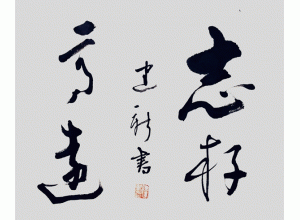 志存
高遠
建新書